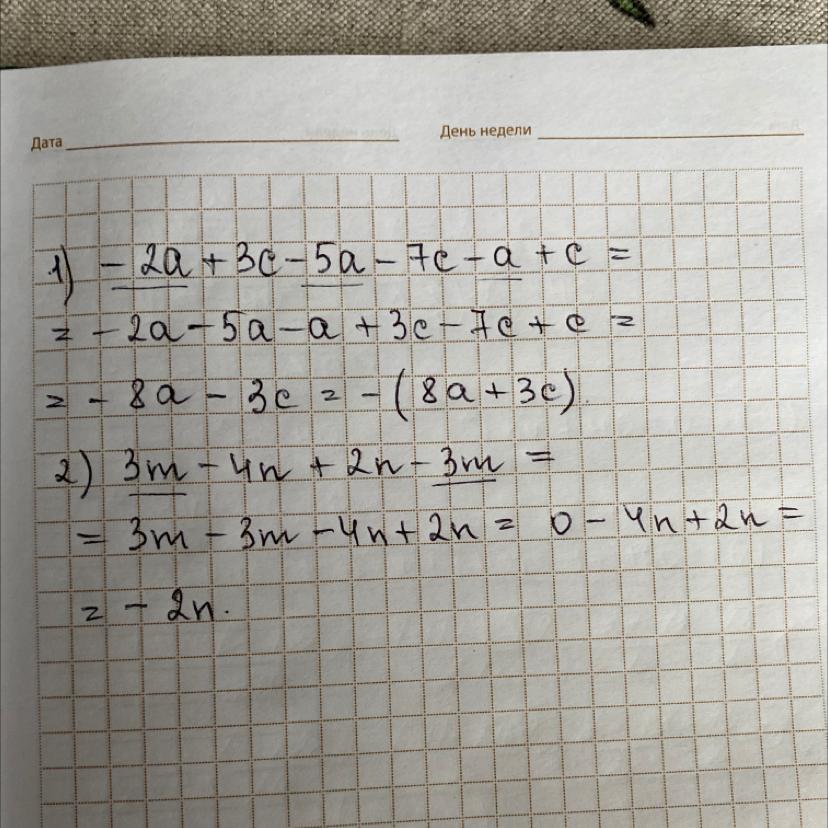 Дата День недели
1) -2a + 3c - 5a - 7c - a + c =
= -2a - 5a - a + 3c - 7c + c =
= - 8a - 3c = - (8a + 3c)
2) 3m - 4n + 2n - 3m =
= 3m - 3m - 4n + 2n = 0 - 4n + 2n =
= - 2n.